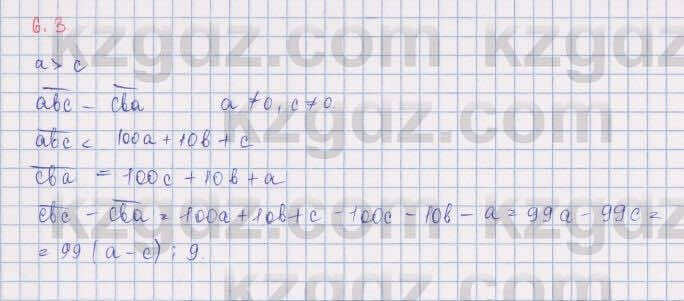 6.3
a > c
a̅b̅c̅ - c̅b̅a̅ a ≠ 0, c ≠ 0
a̅b̅c̅ = 100a + 10b + c
c̅b̅a̅ = 100c + 10b + a
c̅b̅c̅ - c̅b̅a̅ = 100a + 10b + c - 100c - 10b - a = 99a - 99c =
= 99 (a - c) ⋮ 9.
kzgdz.com
kzgdz.com
kzgdz.com